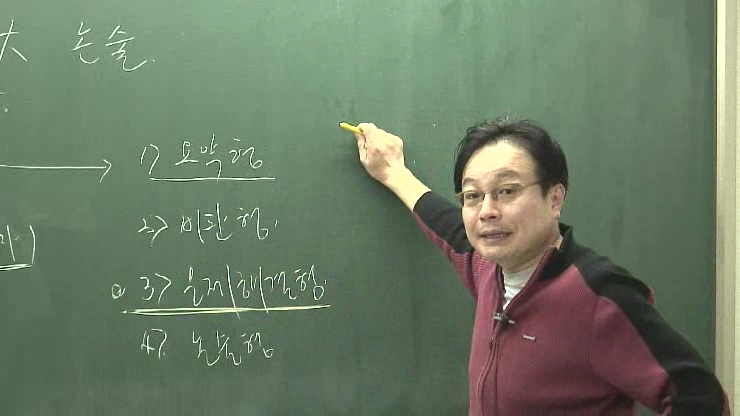 大 논술.
1) 요약형
2) 비판형.
3) 문제해결형.
4) 논술형